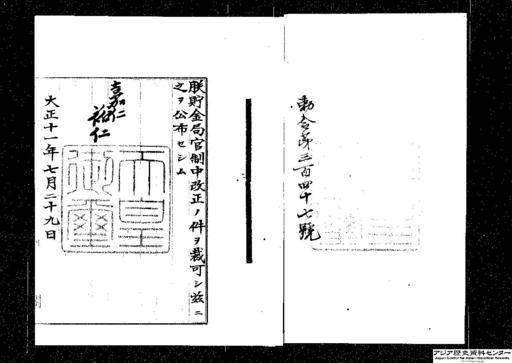 勅令第三百四十七號
朕貯金局官制中改正ノ件ヲ裁可シ茲ニ
之ヲ公布セシム
嘉仁
裕仁
大正十一年七月二十九日
天皇御璽
アジア歴史資料センター
Japan Center for Asian Historical Records